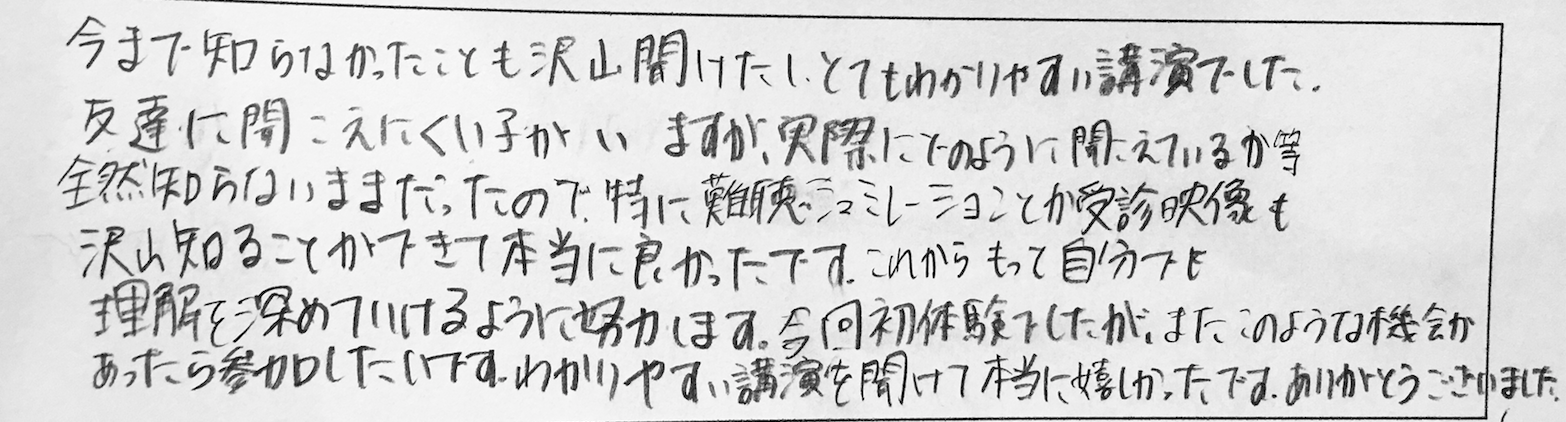 今まで知らなかったことも沢山聞けたし、とてもわかりやすい講演でした。
友達に聞こえにくい子がいますが、実際にどのように聞こえているか等
全然知らないままだったので、特に難聴シュミレーションとか受診映像も
沢山知ることができて本当に良かったです。これからもって自分でも
理解を深めていけるように努力します。今回初体験でしたが、またこのような機会が
あったら参加したいです。わかりやすい講演を聞けて本当に嬉しかったです。ありがとうございました。